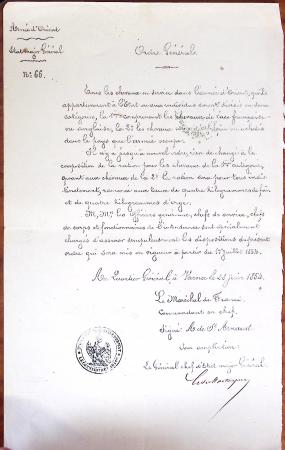 Armée d'Orient
Etat major Général
N° 66.
Ordre Général.
Tous les chevaux en service dans l'armée d'Orient, qu'ils
appartiennent à l'Etat ou aux individus seront divisés en deux
catégories, la 1ère comprenant les chevaux de race française
ou anglaise, la 2e les chevaux ou achetés
dans le pays que l'armée occupe.
Il n'y a jusqu'à nouvel ordre, rien de changé à la
composition de la ration pour les chevaux de la 1ère catégorie,
quant aux chevaux de la 2e la ration sera pour tous
, ramenée aux taux de quatre kilogrammes de foin
et de quatre kilogrammes d'orge.
M.M. les officiers généraux, chefs de service, chefs
de corps et fonctionnaires de l'intendance sont spécialement
chargés d'assurer les dispositions du présent
ordre qui sera mis en vigueur à partir du 1er juillet 1854.
Au Quartier Général, à Varna le 28 juin 1854.
Le Maréchal de France
Commandant en chef.
Signé: A. de St Arnaud.
Pour ampliation:
Le Général chef d'état major Général.